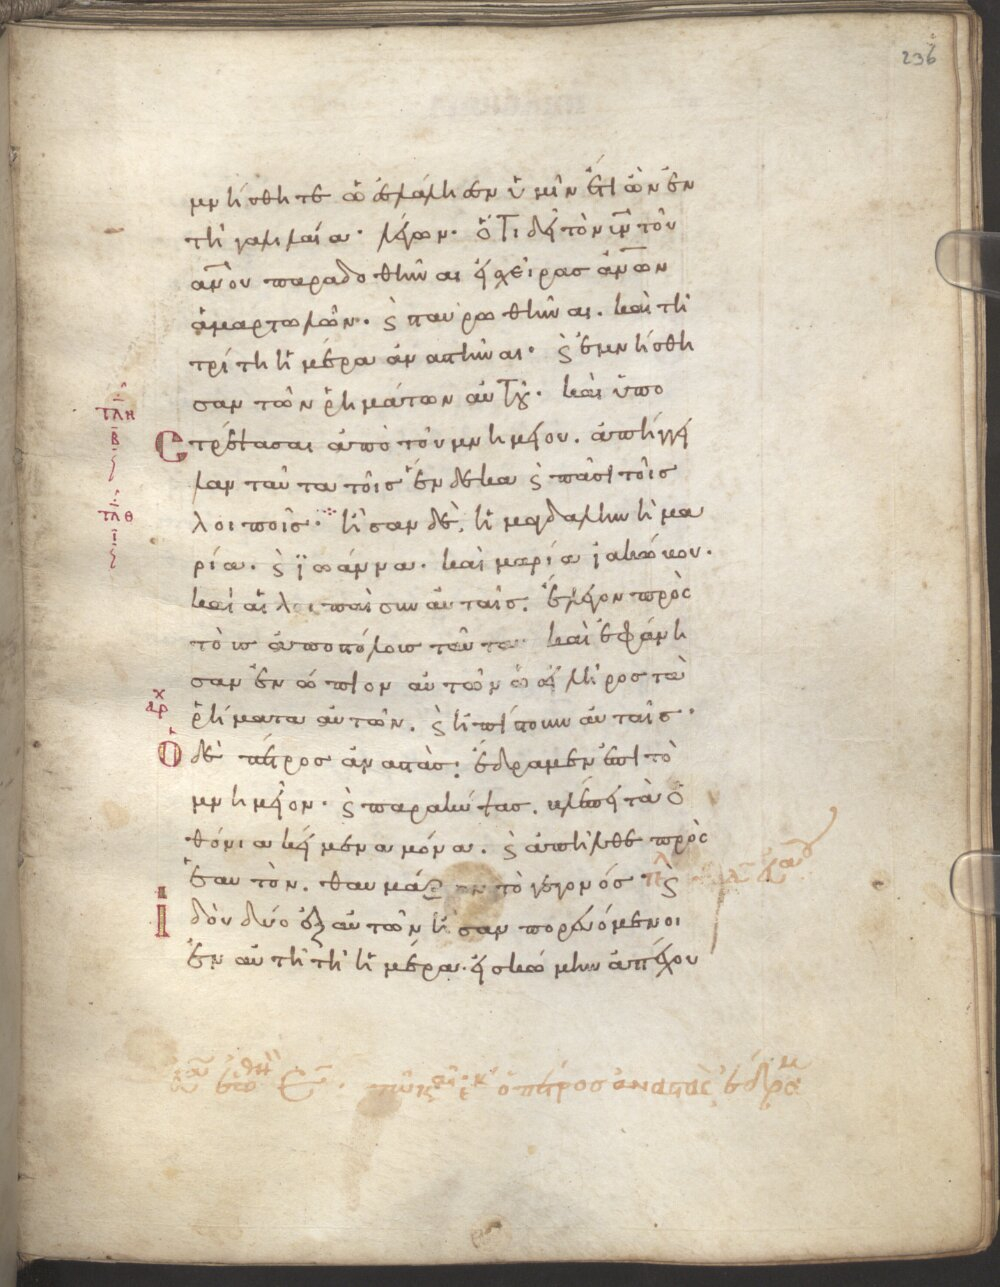 236
μνήσθητε ὡς ἐλάλησεν ὑμῖν ἔτι ὢν ἐν
τῆ γαλιλαία· λέγων· ὅτι δεῖ τὸν υἱὸν τοῦ
ἀνου παραδοθῆναι εἰς χεῖρας ἀνων
ἁμαρτωλῶν· ϛ σταυρωθῆναι. καὶ τῆ
τρίτη ἡμέρα ἀναστῆναι· ϛ ἐμνήσθη
σαν τῶν ῥημάτων αὐτοῦ· καὶ ὑπο
τλη
β
στρέψασαι ἀπὸ τοῦ μνημείου. ἀπήγγει
λαν ταῦτα τοῖς ἕνδεκα ϛ πᾶσι τοῖς
τλθ
ι
λοιποῖς· ἦσαν δὲ, ἡ μαγδαληνὴ μα
ρία. ϛ ϊωάννα. καὶ μαρία ἰακώβου.
καὶ αἱ λοιπαὶ σὺν αὐταῖς. ἔλεγον πρὸς
τοὺς ἀποστόλους ταῦτα καὶ ἐφάνη
σαν ἐνώπιον αὐτῶν ὡσεὶ λῆρος τὰ
ῥήματα αὐτῶν. ϛ ἠπίστουν αὐταῖς·
ἀρχ
Ὁ δὲ πέτρος ἀναστὰς· ἔδραμεν ἐπὶ τὸ
μνημεῖον· ϛ παρακύψας. βλέπει τὰ ὀ
θόνια κείμενα μόνα. ϛ ἀπῆλθε πρὸς
ἑαυτὸν. θαυμάζων τὸ γεγονός· ϛ
ἰδοὺ δύο ἐξ αὐτῶν ἦσαν πορευόμενοι
ἐν αὐτῆ τῆ ἡμέρα. εἰς κώμην ἀπέχου
ὁ πέτρος ἀναστὰς ἔδραμ